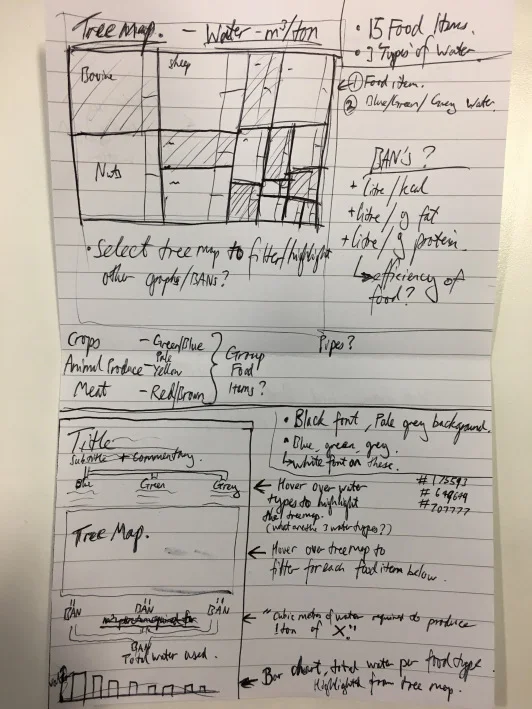 Tree Map. - Water - m³/ton
• 15 Food Items.
• 3 Types of Water.
Bovine
Sheep
① Food item.
② Blue/Green/Grey Water.
Nuts
BAN's?
+ litre/kcal
+ litre/g fat
+ litre/g protein.
↳ efficiency of
food?
• Select tree map to filter/highlight
other graphs/BANs?
Pipes?
Crops - Green/Blue
Animal Produce - Pale Yellow
Meat - Red/Brown
Group
Food
Items?
• Black font, Pale grey background.
• Blue, green, grey.
↳ white font on these.
Title
Subtitle + Commentary.
Blue Green Grey
← Hover over water
types to highlight
the treemap.
(what are the 3 water types?)
Tree Map.
← Hover over tree map to
filter for each food item below.
BAN BAN BAN
← "Cubic metres of water required to produce
1 ton of X."
BAN
Total water used.
← Bar chart, total water per food type.
Highlight from tree map.